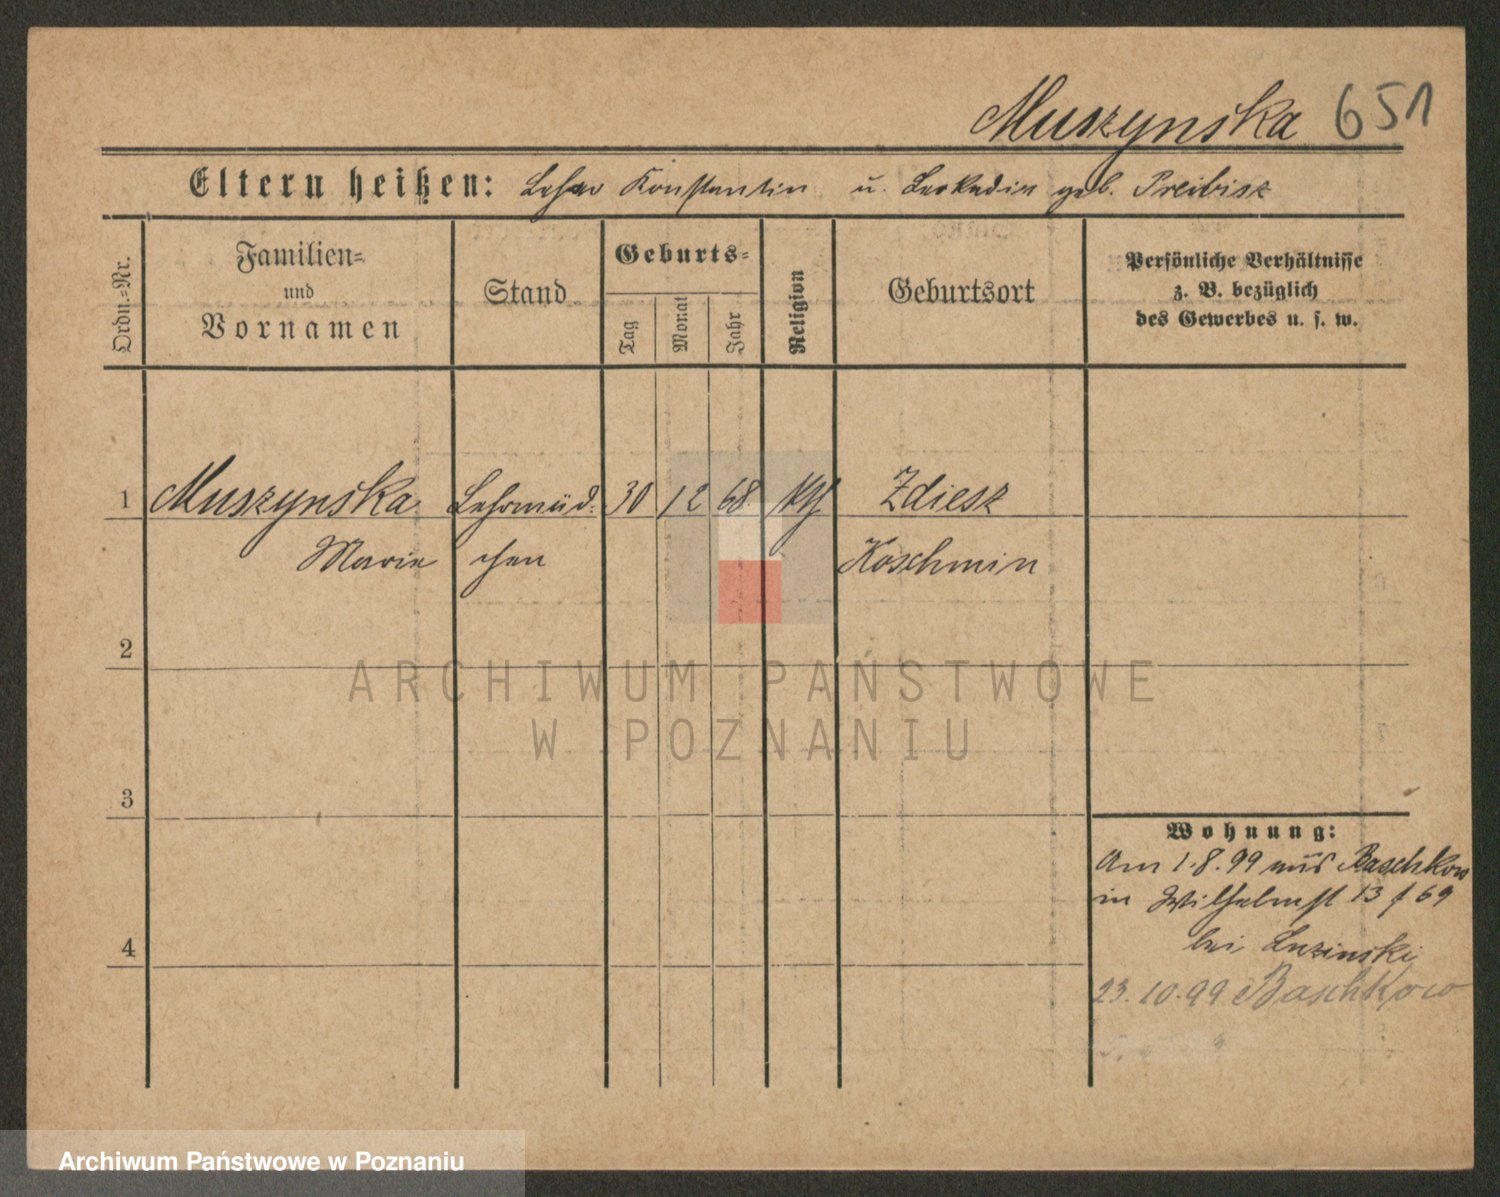 Muszynska 651
Eltern heißen: Lehrer Konstantin u. Leokadia geb. Preibisz
Ordn.=Nr.
Familien=
und
Vornamen
Stand
Geburts=
Tag
Monat
Jahr
Religion
Geburtsort
Persönliche Verhältnisse
z. B. bezüglich
des Gewerbes u. s. w.
1 Muszynska Lehrmäd= 30 12 68 kth Zdiesz
Marie chen Koschmin
2
ARCHIWUM PAŃSTWOWE
W POZNANIU
3
Wohnung:
Am 1.8.99 aus Baschkow
in Wilhelmst 13 f 69
bei
4
23.10.99 Baschkow
Archiwum Państwowe w Poznaniu